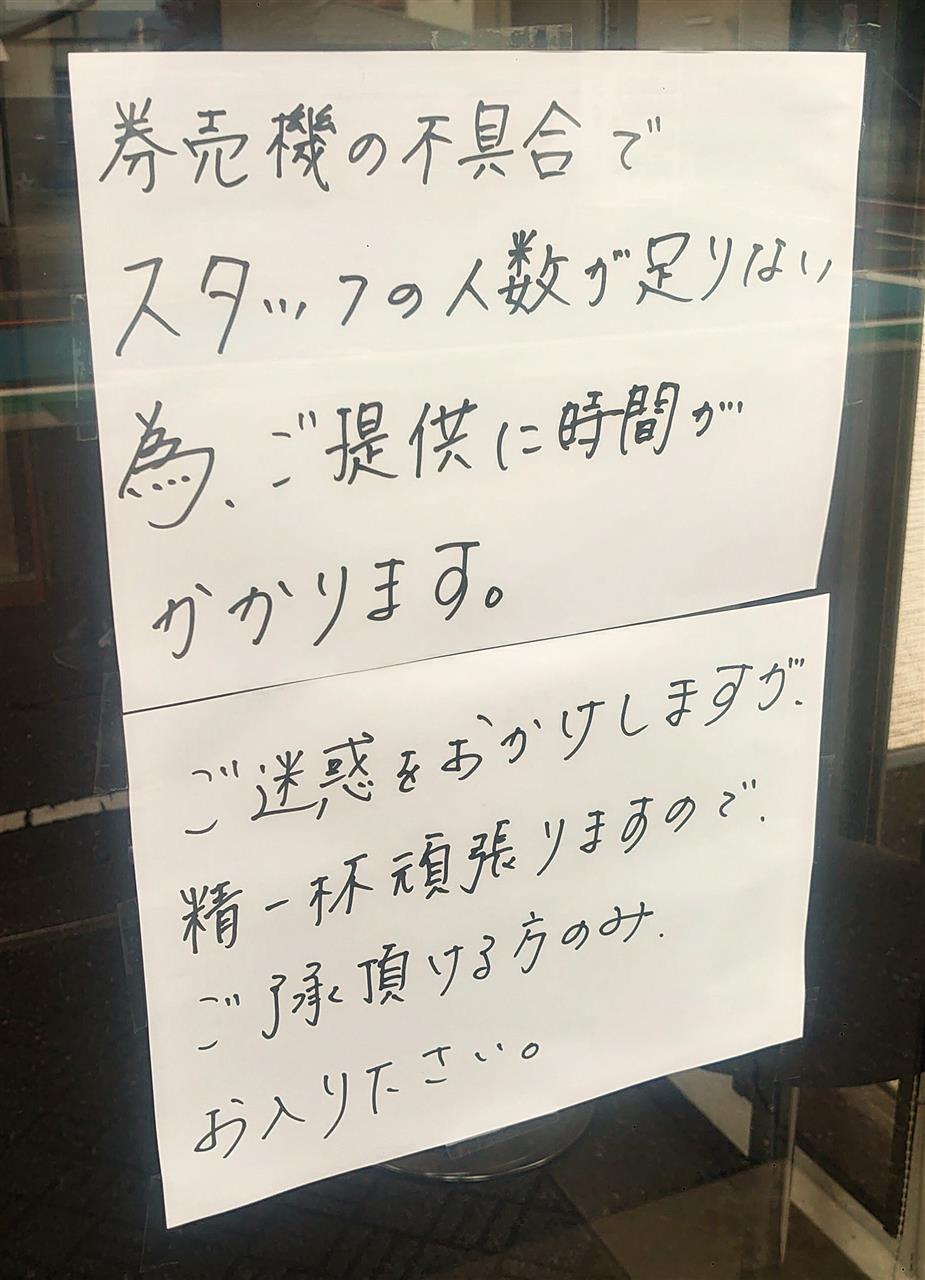 券売機の不具合で
スタッフの人数が足りない
為、ご提供に時間が
かかります。
ご迷惑をおかけしますが、
精一杯頑張りますので、
ご了承頂ける方のみ、
お入りださい。